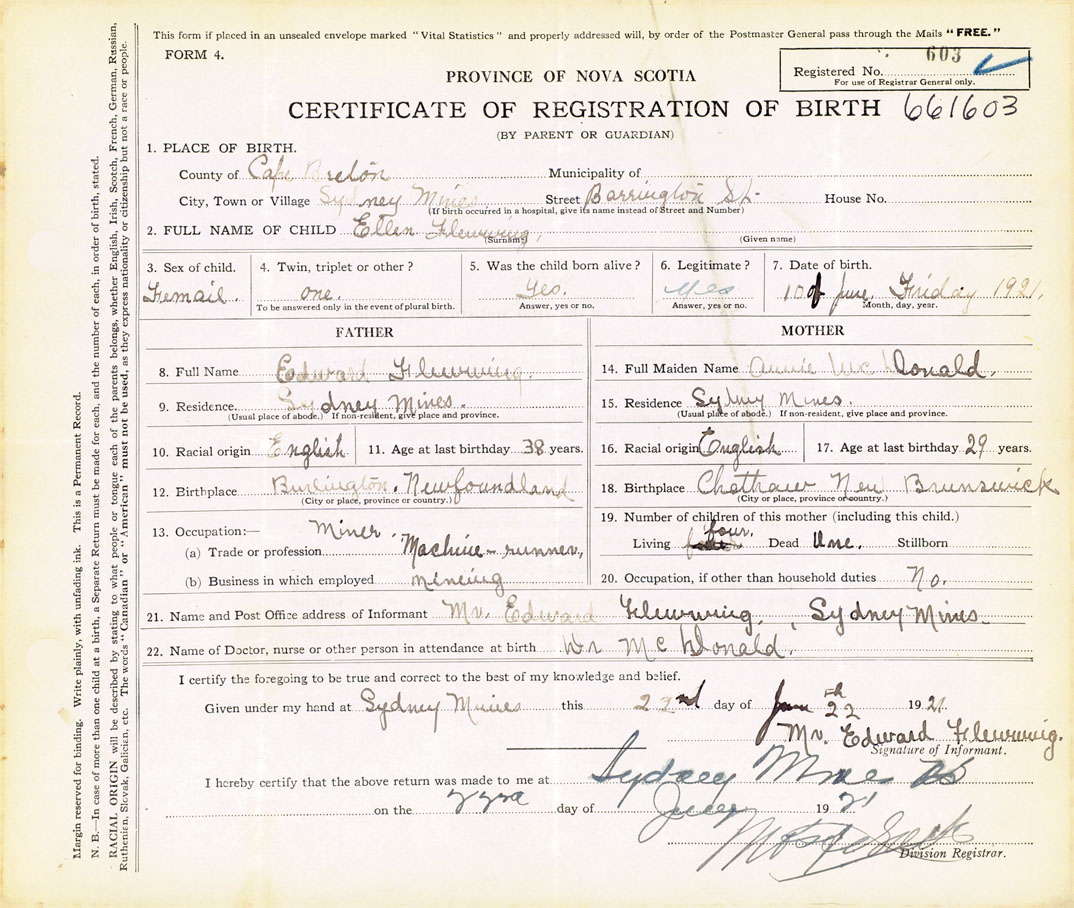 This form if placed in an unsealed envelope marked "Vital Statistics" and properly addressed will, by order of the Postmaster General pass through the Mails "FREE."
FORM 4.
Registered No. 603
For use of Registrar General only.
PROVINCE OF NOVA SCOTIA
CERTIFICATE OF REGISTRATION OF BIRTH 661603
(BY PARENT OR GUARDIAN)
1. PLACE OF BIRTH.
County of Cape Breton Municipality of
City, Town or Village Sydney Mines Street Barrington St. House No.
(If birth occurred in a hospital, give its name instead of Street and Number)
2. FULL NAME OF CHILD Ellen Flewwing,
(Surname) (Given name)
3. Sex of child. 4. Twin, triplet or other? 5. Was the child born alive? 6. Legitimate? 7. Date of birth.
Femail. one. Yes. Yes 10 of June, Friday 1921.
To be answered only in the event of plural birth. Answer, yes or no. Answer, yes or no. Month, day, year.
FATHER
8. Full Name Edward Flewwing.
9. Residence. Sydney Mines.
(Usual place of abode.) If non-resident, give place and province.
10. Racial origin English 11. Age at last birthday 38 years.
12. Birthplace Burlington, Newfoundland
(City or place, province or country.)
13. Occupation:— Miner.
(a) Trade or profession Machine-runner,
(b) Business in which employed mineing
MOTHER
14. Full Maiden Name Annie McDonald.
15. Residence Sydney Mines.
(Usual place of abode.) If non-resident, give place and province.
16. Racial origin English 17. Age at last birthday 29 years.
18. Birthplace Chatham New Brunswick
(City or place, province or country.)
19. Number of children of this mother (including this child.)
four.
Living Dead One. Stillborn
20. Occupation, if other than household duties No.
21. Name and Post Office address of Informant Mr. Edward Flewwing, Sydney Mines.
22. Name of Doctor, nurse or other person in attendance at birth Dr McDonald.
I certify the foregoing to be true and correct to the best of my knowledge and belief.
Given under my hand at Sydney Mines this 22nd day of June 22 1921.
Mr. Edward Flewwing.
Signature of Informant.
I hereby certify that the above return was made to me at Sydney Mines NS
on the day of 1921
Division Registrar.
Margin reserved for binding. Write plainly, with unfading ink. This is a Permanent Record.
N. B.—In case of more than one child at a birth, a Separate Return must be made for each, and the number of each, in order of birth, stated.
RACIAL ORIGIN will be described by stating to what people or tongue each of the parents belongs, whether English, Irish, Scotch, French, German, Russian,
Ruthenien, Slovak, Galician, etc. The words "Canadian" or "American" must not be used, as they express nationality or citizenship but not a race or people.